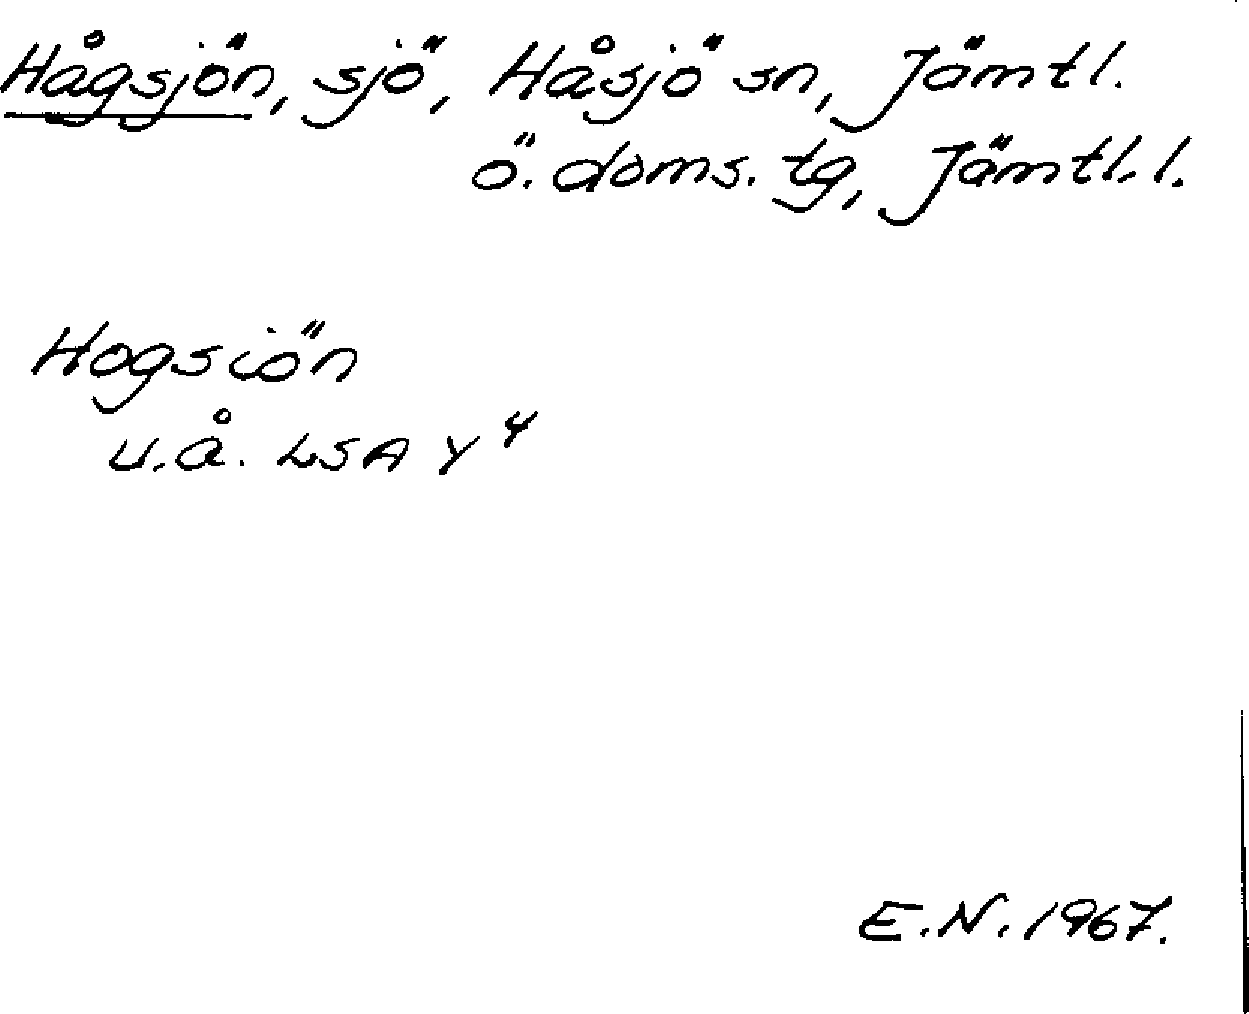 Hågsjön, sjö, Håsjö sn, Jämtl.
ö. doms. tg, Jämtl. l.
Hogsiön
u.å. LSA Y 4
E.N. 1967.